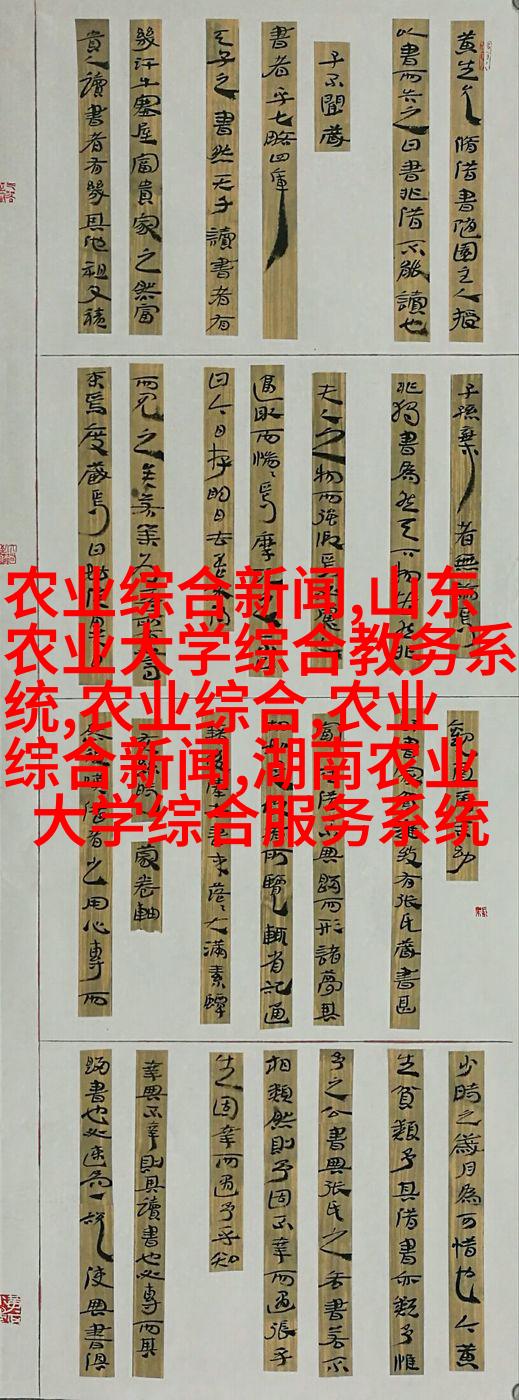 黄生允脩借書隨園主人授
以書而告之曰書非借不能讀也
子不聞藏
書者乎七略四庫
天子之書然天子讀書者有
幾汗牛塞屋富貴家之然富
貴人讀書者有幾其他祖父積
子孫棄者無論焉
非獨書為然天下物皆然非
夫人之物而強假焉
逼取而惴惴焉摩
曰今日存明日去吾
而見之矣若業
束焉庋藏焉曰姑俟異
农业综合新闻,山东
农业大学综合教务系
统,农业综合,农业
综合新闻,湖南农业
大学综合服务系统
余幼
致有張氏藏書甚
與歸而形諸夢其
所覽輒省記通
來落落大滿素蟫
蒙卷軸
借者之用心專而
少時之歲月為可惜也今黃
生貧類予其借書亦類予惟
予之公書與張氏之吝書若不
相類然則予固不幸而遇張乎
生固幸而遇予乎知
幸與不幸則其讀書也必專而其
歸書也必速為一說使與書俱